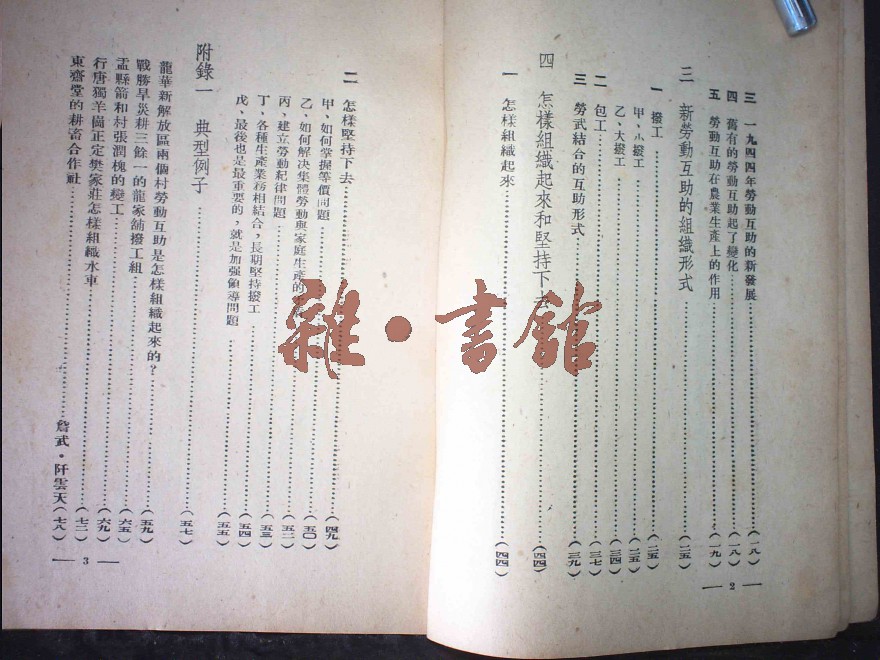 三 一九四四年勞動互助的新發展……(一八)
四 舊有的勞動互助起了變化……(一八)
五 勞動互助在農業生產上的作用……(一九)
三 新勞動互助的組織形式……(二五)
一 撥工……(二五)
甲、小撥工……(二五)
乙、大撥工……(三四)
二 包工……(三七)
三 勞武結合的互助形式……(三九)
四 怎樣組織起來和堅持下去……(四四)
一 怎樣組織起來……(四四)
— 2 —
二 怎樣堅持下去……(四九)
甲、如何掌握等價問題……(四九)
乙、如何解決集體勞動與家庭生產的……(五〇)
丙、建立勞動紀律問題……(五二)
丁、各種生產業務相結合,長期堅持撥工……(五三)
戊、最後也是最重要的,就是加强領導問題……(五四)
附錄一 典型例子……(五七)
龍華新解放區兩個村勞動互助是怎樣組織起來的?……(五九)
戰勝旱災耕三餘一的龍家舖撥工組……(六五)
盂縣箭和村張潤槐的變工……(六九)
行唐獨羊崗正定樊家莊怎樣組織水車……(七二)
東齋堂的耕畜合作社……詹武・阡雲天(七八)
— 3 —
雜・書館